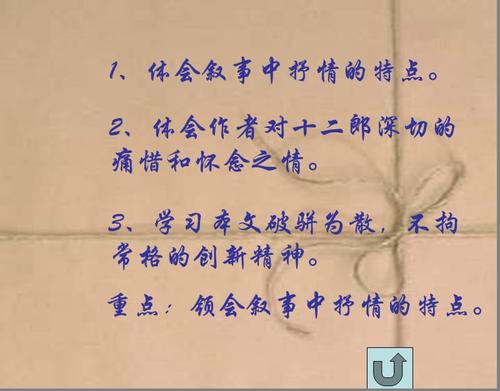 1、体会叙事中抒情的特点。
2、体会作者对十二郎深切的
痛惜和怀念之情。
3、学习本文破骈为散，不拘
常格的创新精神。
重点：领会叙事中抒情的特点。